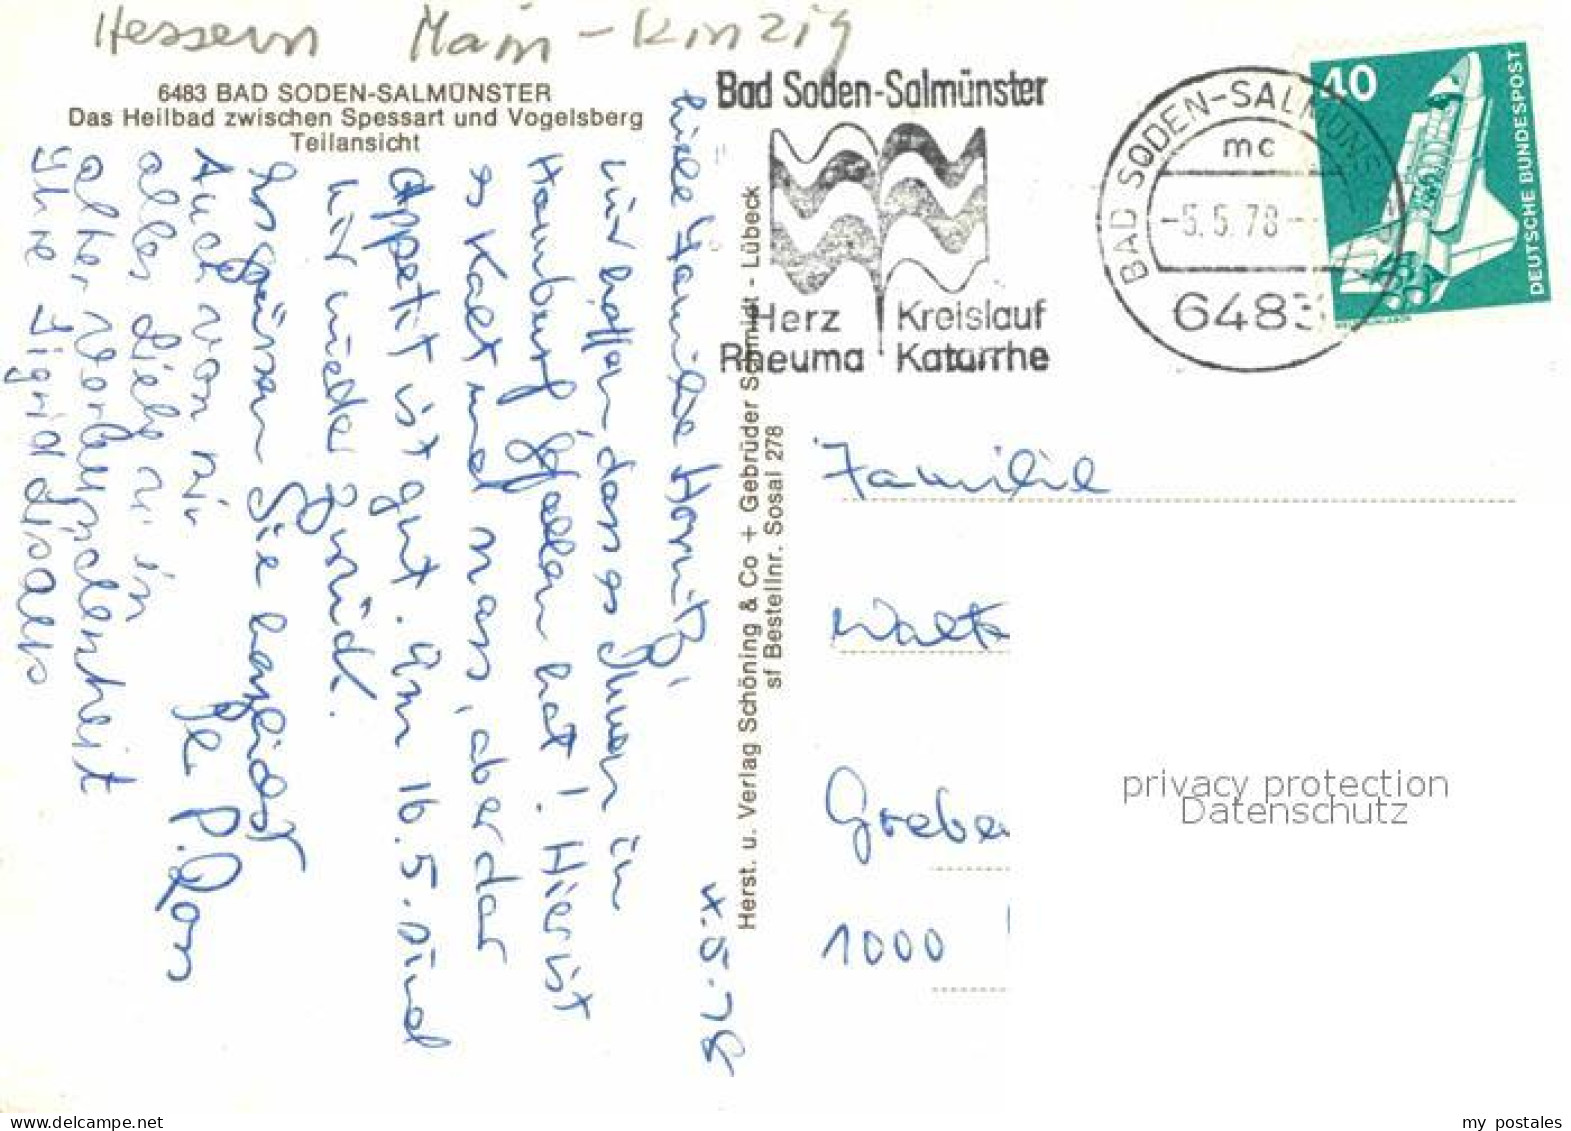 Hessen Main-Kinzig
6483 BAD SODEN-SALMÜNSTER
Das Heilbad zwischen Spessart und Vogelsberg
Teilansicht
Bad Soden-Salmünster
Herz Kreislauf
Rheuma Katarrhe
BAD SODEN-SALMÜNS
mc
-5.5.78-
6483
40
DEUTSCHE BUNDESPOST
4.5.78
Liebe Familie
wir hoffen dass es Ihnen in
Homburg gefallen hat! Hier ist
es Kalt und nass, aber der
Appetit ist gut. Am 16.5. sind
wir wieder zurück.
Es grüssen Sie herzlichst
Auch von mir
alles Liebe
alter Verbundenheit
Ihre Sigrid
Herst. u. Verlag Schöning & Co + Gebrüder Schmidt - Lübeck
sf Bestellnr. Sosal 278
Familie
Walte
Grebe
1000
privacy protection
Datenschutz
my postales